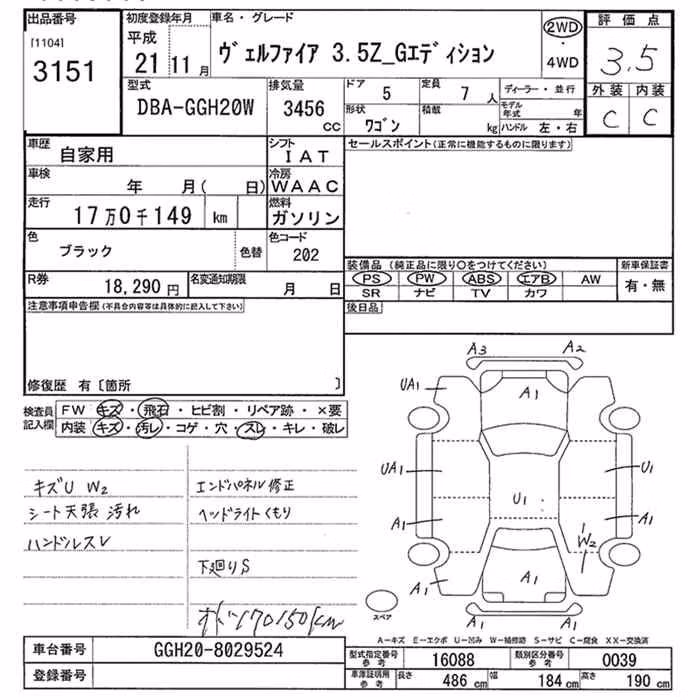 出品番号
[1104]
3151
初度登録年月
平成
21 11 月
車名・グレード
ヴェルファイア 3.5Z_Gエディション
2WD
・
4WD
評価点
3.5
外装 内装
C C
型式
DBA-GGH20W
排気量
3456
CC
ドア
5
定員
7 人
形状
ワゴン
積載
kg
ディーラー・並行
モデル年式 年
ハンドル 左・右
車歴
自家用
シフト
IAT
車検
年 月( 日)
冷房
WAAC
走行
17万0千149 km
燃料
ガソリン
色
ブラック
色替
色コード
202
R券
18,290 円
名変通知期限
月 日
セールスポイント(正常に機能するものに限ります)
装備品 (純正品に限り〇をつけてください)
PS PW ABS エアB AW
SR ナビ TV カワ
新車保証書
有・無
後日品
注意事項申告欄(不具合内容等は具体的に記入して下さい)
修復歴 有〔箇所 〕
検査員記入欄
FW キズ・飛石・ヒビ割・リペア跡・×要
内装 キズ・汚レ・コゲ・穴・スレ・キレ・破レ
キズU W2
シート天張 汚れ
ハンドルスレ
エンドパネル修正
ヘッドライトくもり
下廻りS
170150km
A3 A2
UA1 A1
UA1 U1 U1
A1 A1
W2
A1 A1
A1
スペア
A-キズ E-エクボ U-凹み W-補修跡 S-サビ C-腐食 XX-交換済
車台番号
GGH20-8029524
登録番号
型式指定番号
参考
16088
類別区分番号
参考
0039
車庫証明用
参考
長さ 486 cm 幅 184 cm 高さ 190 cm